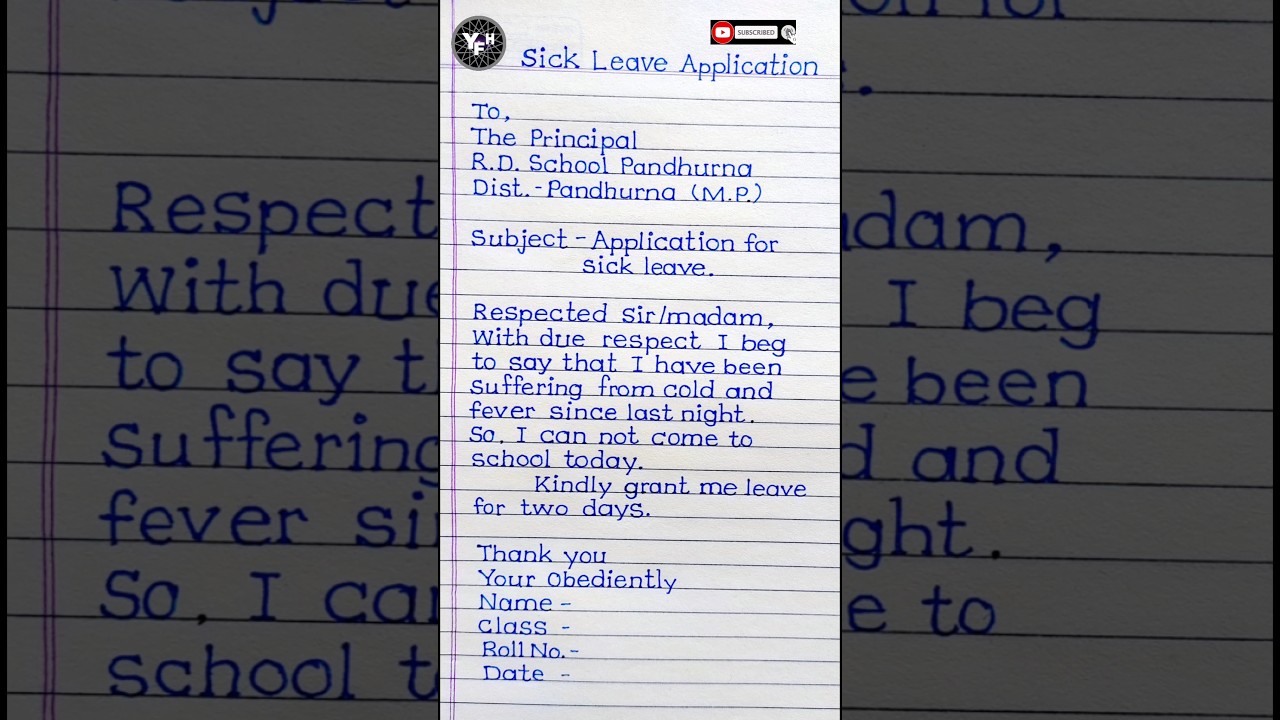 YFH
SUBSCRIBED
Sick Leave Application
To,
The Principal
R.D. School Pandhurna
Dist.-Pandhurna (M.P.)
Subject - Application for
sick leave.
Respected Sir/madam,
With due respect I beg
to say that I have been
suffering from cold and
fever since last night.
So, I can not come to
school today.
Kindly grant me leave
for two days.
Thank you
Your Obediently
Name -
Class -
Roll No.-
Date -